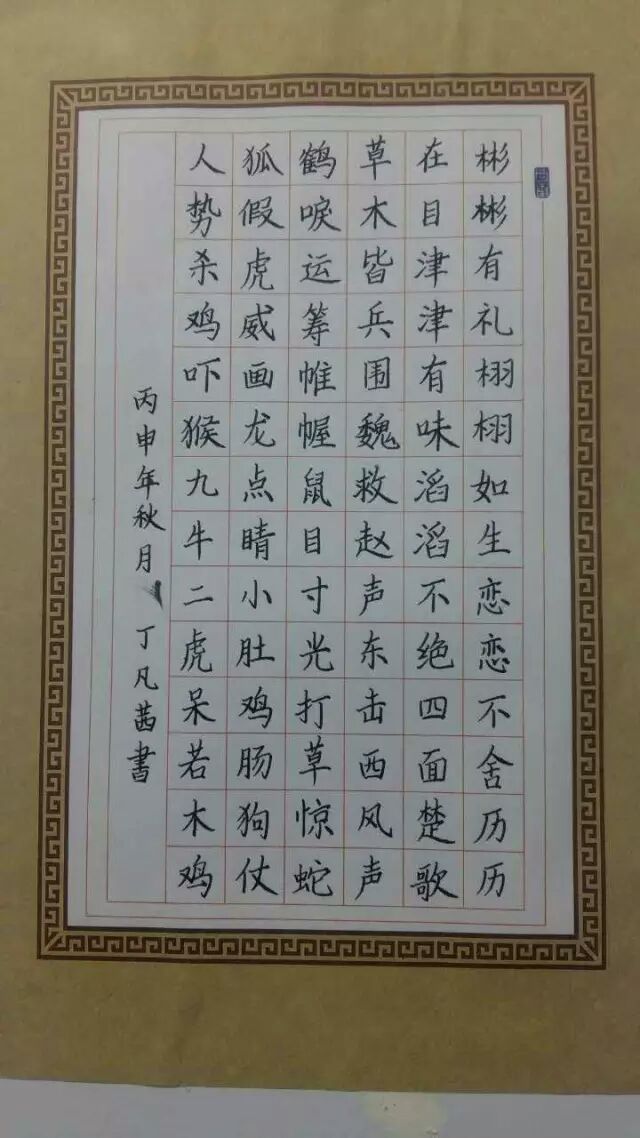 彬彬有礼栩栩如生恋恋不舍历历
在目津津有味滔滔不绝四面楚歌
草木皆兵围魏救赵声东击西风声
鹤唳运筹帷幄鼠目寸光打草惊蛇
狐假虎威画龙点睛小肚鸡肠狗仗
人势杀鸡吓猴九牛二虎呆若木鸡
丙申年秋月丁凡茜書